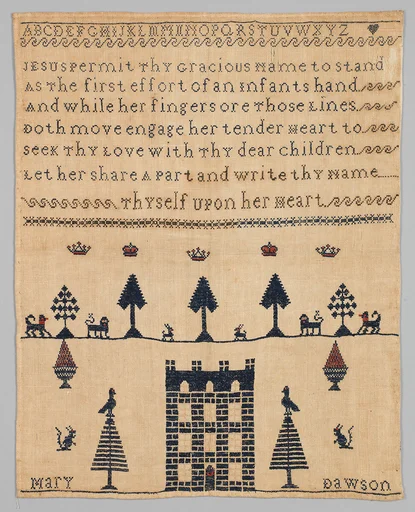 ABCDEFGHIJKLMNOPQRSTUVWXYZ
JESUS permit Thy Gracious Name to stand
As The first effort of an infants hand
And while her fingers ore Those Lines
Doth move engage her tender Heart to
seek Thy Love with Thy dear children
Let her share A Part and write Thy Name
Thyself upon her Heart
Mary Dawson